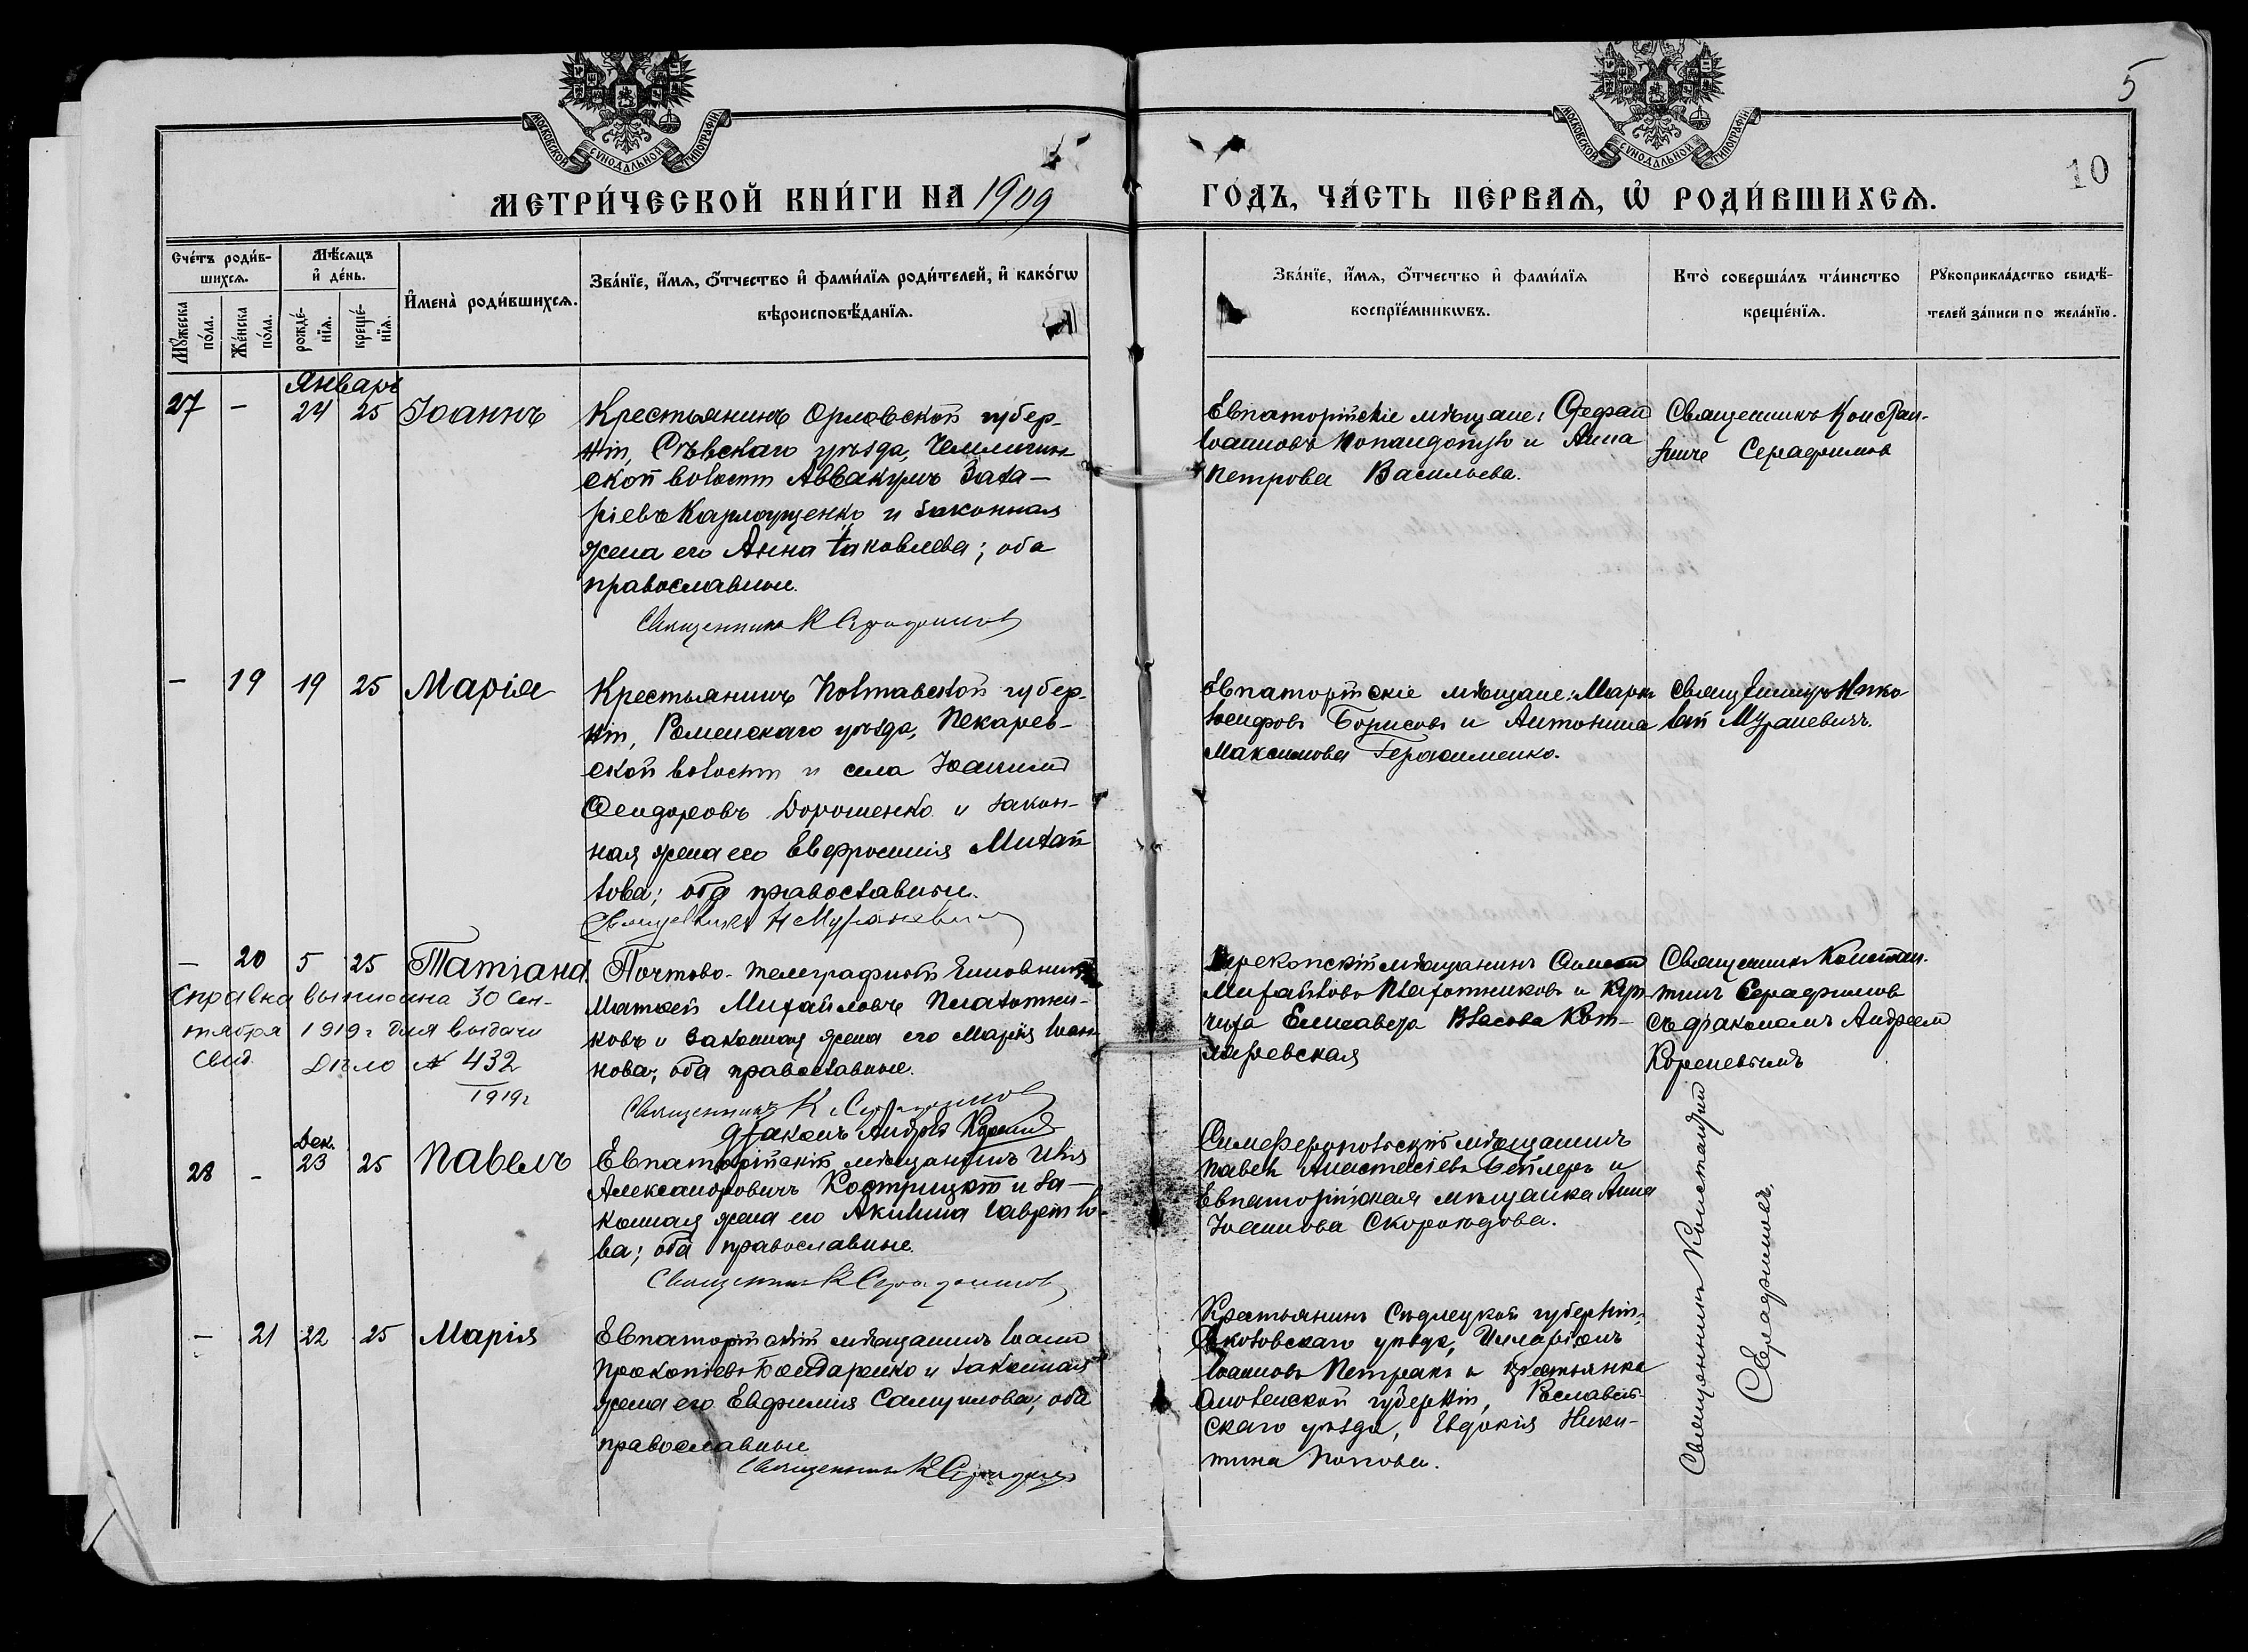 5
10
МОСКОВСКОЙ СѴНОДАЛЬНОЙ ТИПОГРАФІИ
МОСКОВСКОЙ СѴНОДАЛЬНОЙ ТИПОГРАФІИ
МЕТРИ́ЧЕСКОЙ КНИ́ГИ НА 1909
ГО́ДЪ, ЧА́СТЬ ПЕ́РВАѦ, Ѡ҆ РОДИ́ВШИХСѦ.
Сче́тъ роди́в-
шихсѧ.
Мꙋ́жеска
по́ла.
Же́нска
по́ла.
Мѣ́сѧцъ
и҆ де́нь.
рожде́-
нїѧ.
креще́-
нїѧ.
И҆мена̀ роди́вшихсѧ.
Зва́нїе, и҆́мѧ, ѻ҆́тчество и҆ фами́лїѧ роди́телей, и҆ како́гѡ
вѣроисповѣ́данїѧ.
Зва́нїе, и҆́мѧ, ѻ҆́тчество и҆ фами́лїѧ
воспрїе́мникѡвъ.
Кто̀ соверша́лъ та́инство
креще́нїѧ.
Рꙋкоприкла́дство свидѣ́-
телей за́писи по жела́нїю.
Январь
27 - 24 25 Іоаннъ
Крестьянинъ Орловской губер-
ніи, Сѣвскаго уѣзда,
ской волости Аввакумъ Заха-
ріевъ Карлоущенко и законная
жена его Анна Іаковлева; оба
православные.
Священникъ К Серафимов
Евпаторійскіе мѣщане: Стефан
Іоанновъ и Анна
Петрова Васильева.
Священникъ Констан-
тинъ Серафимов
- 19 19 25 Марія
Крестьянинъ Полтавской губер-
ніи, Роменскаго уѣзда, Пекарев-
ской волости и села Іоаннъ
Феодоровъ Дорошенко и закон-
ная жена его Евфросинія Михай
лова; оба православные.
Священникъ Н Мураневич
Евпаторійскіе мѣщане: Маркъ
Іосифовъ Борисовъ и Антонина
Максимова Герасименко.
Священникъ Нико
лай Мураневичъ.
- 20 5 25 Татіана
Справка выписана 30 Сен-
тября 1919 г для выдачи
свид. Дѣло № 432
1919 г
Почтово-телеграфный чиновникъ
Матѳей Михайловъ Плахотни-
ковъ и законная жена его Марія Іоан-
нова; оба православные.
Священникъ К Серафимов
Діаконъ Андрей Кореневъ
Перекопскій мѣщанинъ Симеонъ
Михайловъ Плахотниковъ и Куп-
чиха Елисавета Власова Кот-
ляревская
Священникъ Констан-
тинъ Серафимов
съ діакономъ Андреем
Кореневымъ
Дек.
28 - 23 25 Павелъ
Евпаторійскій мѣщанинъ Илія
Александровичъ Кострицкій и за-
конная жена его Акилина Гаврiило-
ва; оба православные.
Священникъ К Серафимов
Симферопольскій мѣщанинъ
Павелъ Анастасіевъ Бейлеръ и
Евпаторійская мѣщанка Анна
Іоаннова Скороходова.
- 21 22 25 Марія
Евпаторійскій мѣщанинъ Іоанн
Прокопіевъ Бондаренко и законная
жена его Евфимія Самуилова; оба
православные
Священникъ К Серафимов
Крестьянинъ Сѣдлецкой губерніи,
Соколовскаго уѣзда, Иларіонъ
Іоанновъ Петрукъ и крестьянка
Смоленской губерніи, Рославль-
скаго уѣзда, Евдокія Ники-
тина Попова.
Священникъ Константин
Серафимовъ.